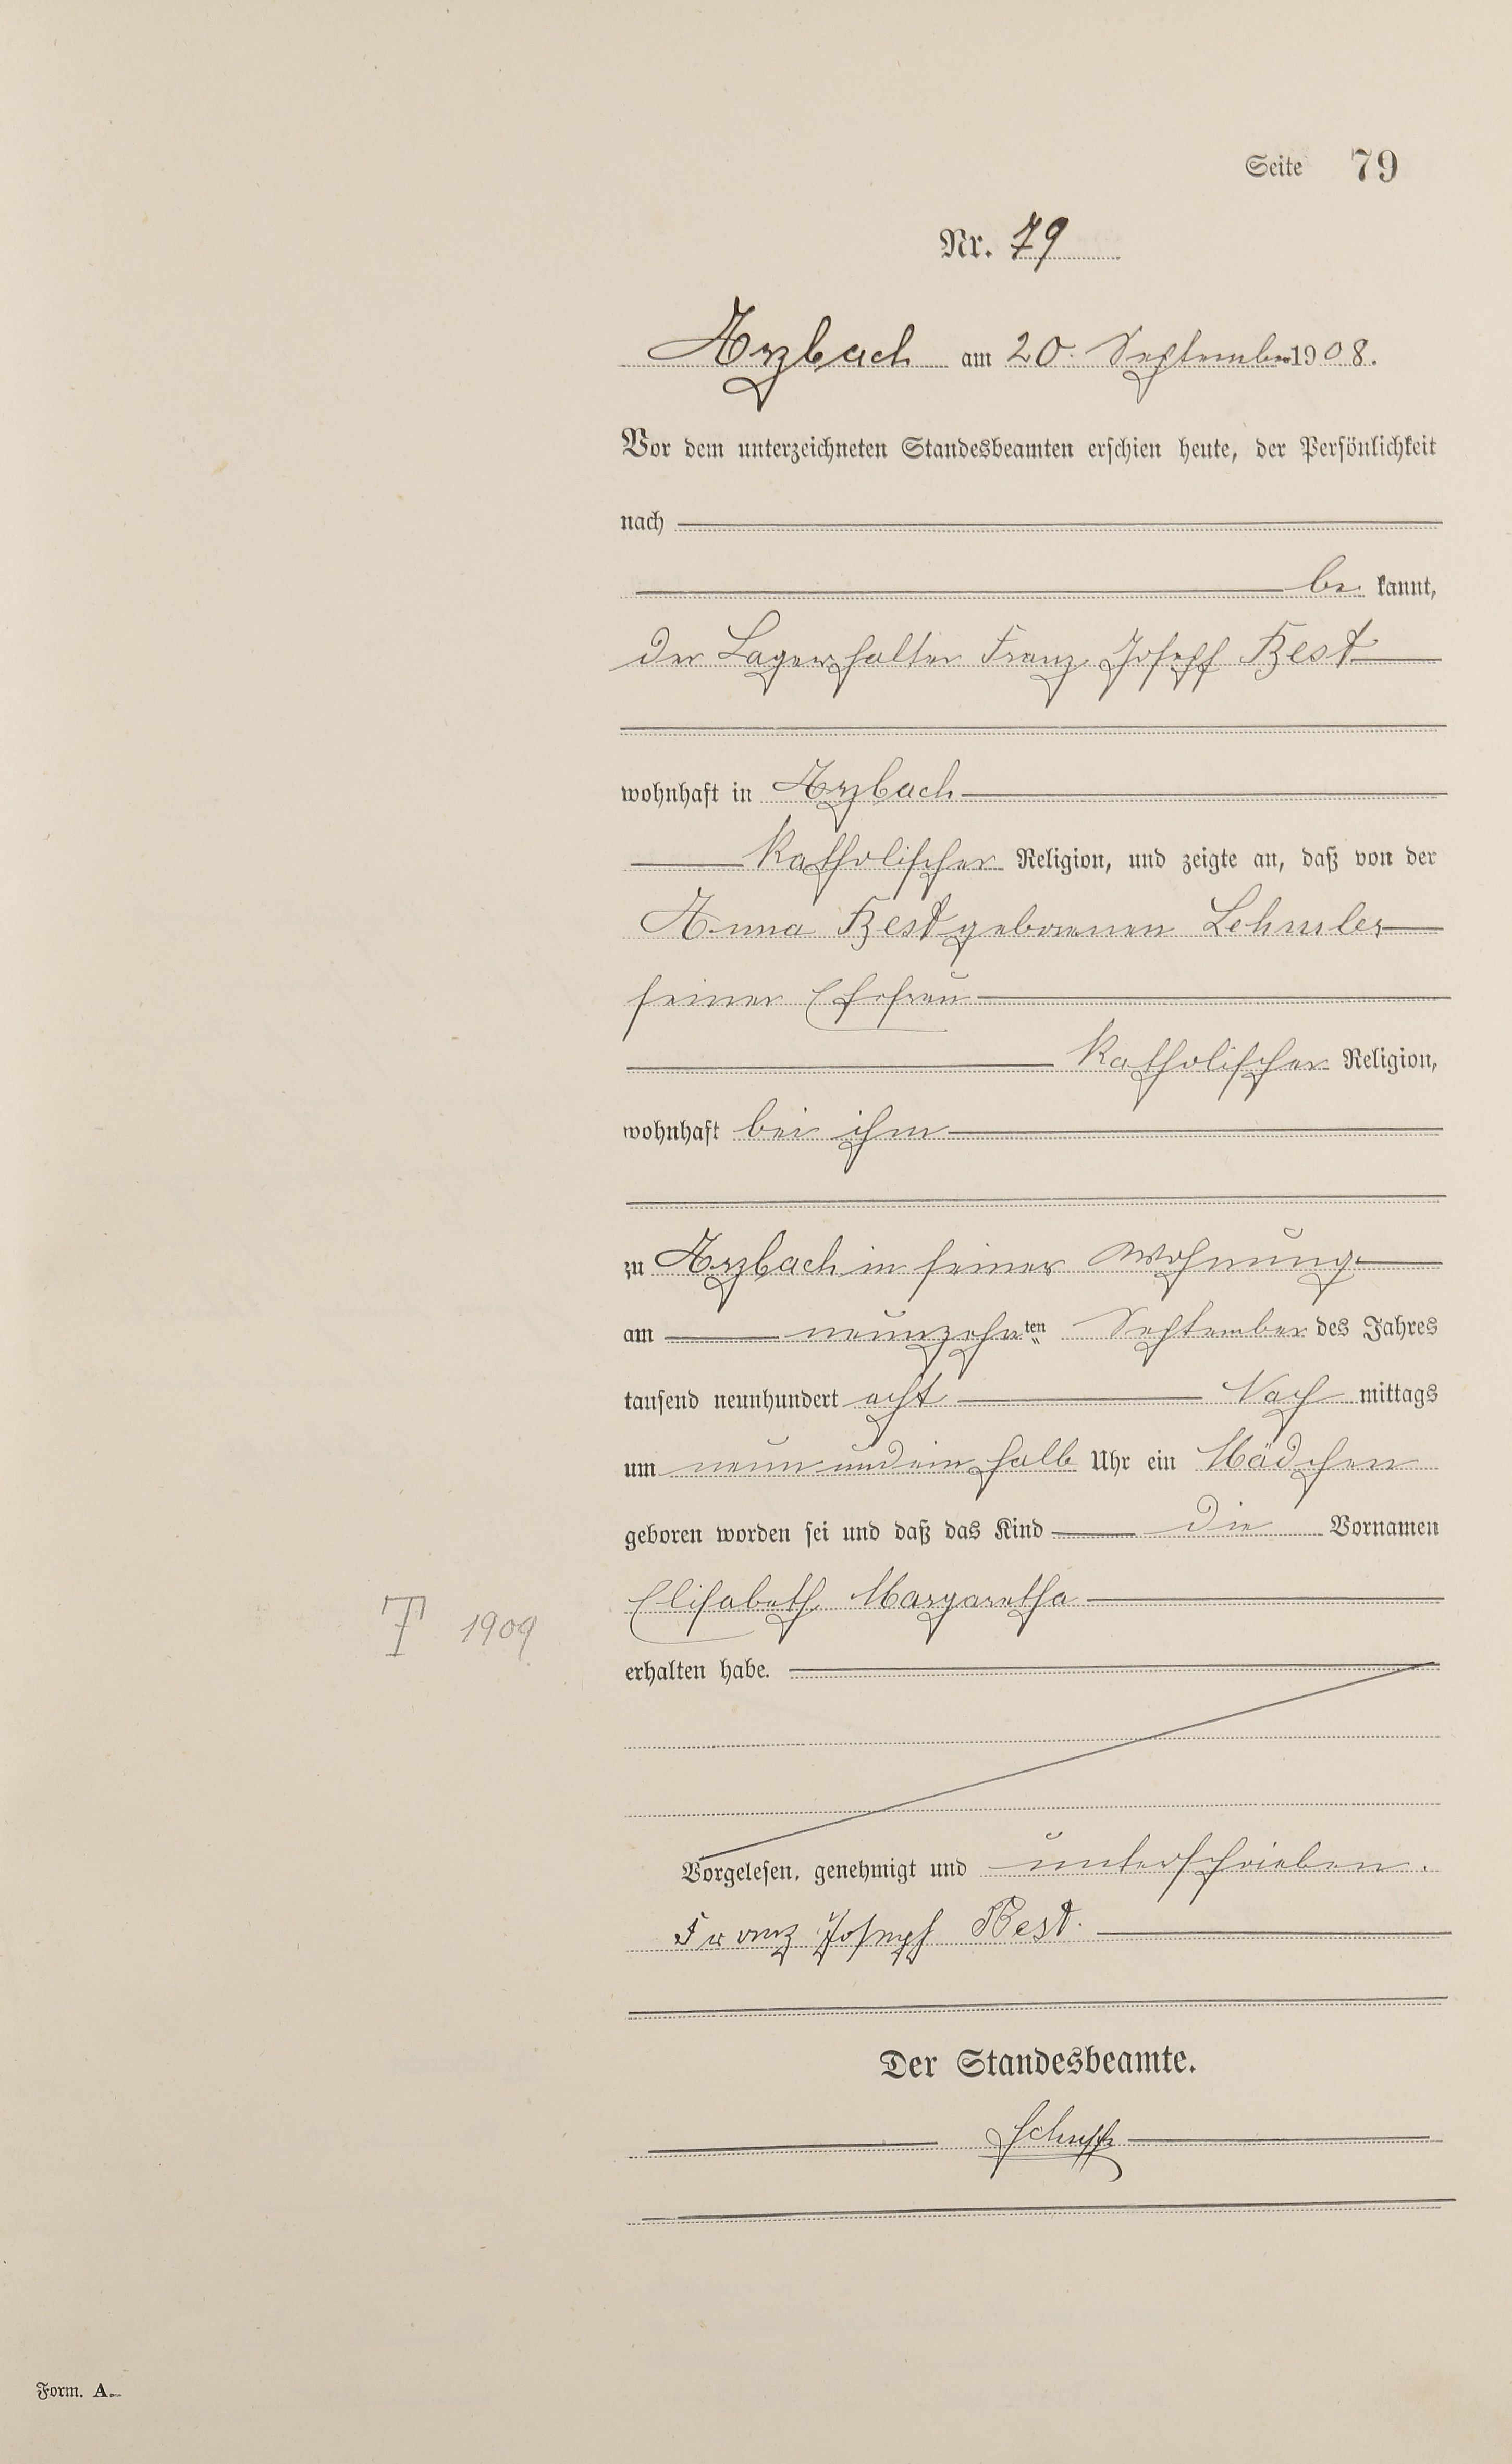 Seite 79
Nr. 79
Arzbach am 20. September 1908.
Vor dem unterzeichneten Standesbeamten erschien heute, der Persönlichkeit
nach
be kannt,
der Lagerhalter Franz Joseph Best
wohnhaft in Arzbach
katholischer Religion, und zeigte an, daß von der
Anna Best geborenen Lehmler
seiner Ehefrau
katholischer Religion,
wohnhaft bei ihm
zu Arzbach in seiner Wohnung
am neunzehnten September des Jahres
tausend neunhundert acht Nach mittags
um neun und ein halb Uhr ein Mädchen
geboren worden sei und daß das Kind die Vornamen
Elisabeth Margaretha
T 1909
erhalten habe.
Vorgelesen, genehmigt und unterschrieben.
Franz Joseph Best.
Der Standesbeamte.
Form. A.